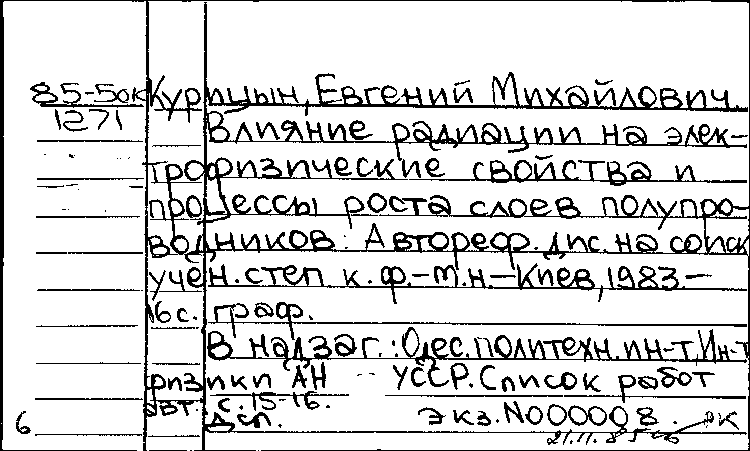 85-5ок Курицын, Евгений Михайлович
1271 Влияние радиации на элек-
трофизические свойства и
процессы роста слоев полупро-
водников: Автореф. дис. на соиск
учён. степ к.ф.-м.н.-Киев, 1983.-
16 с. граф.
В надзаг.: Одес. политехн. ин-т, Ин-т
физики АН УССР. Список работ
авт. с. 15-16.
6 Дсп. Экз. №000008. ок
21.11.85